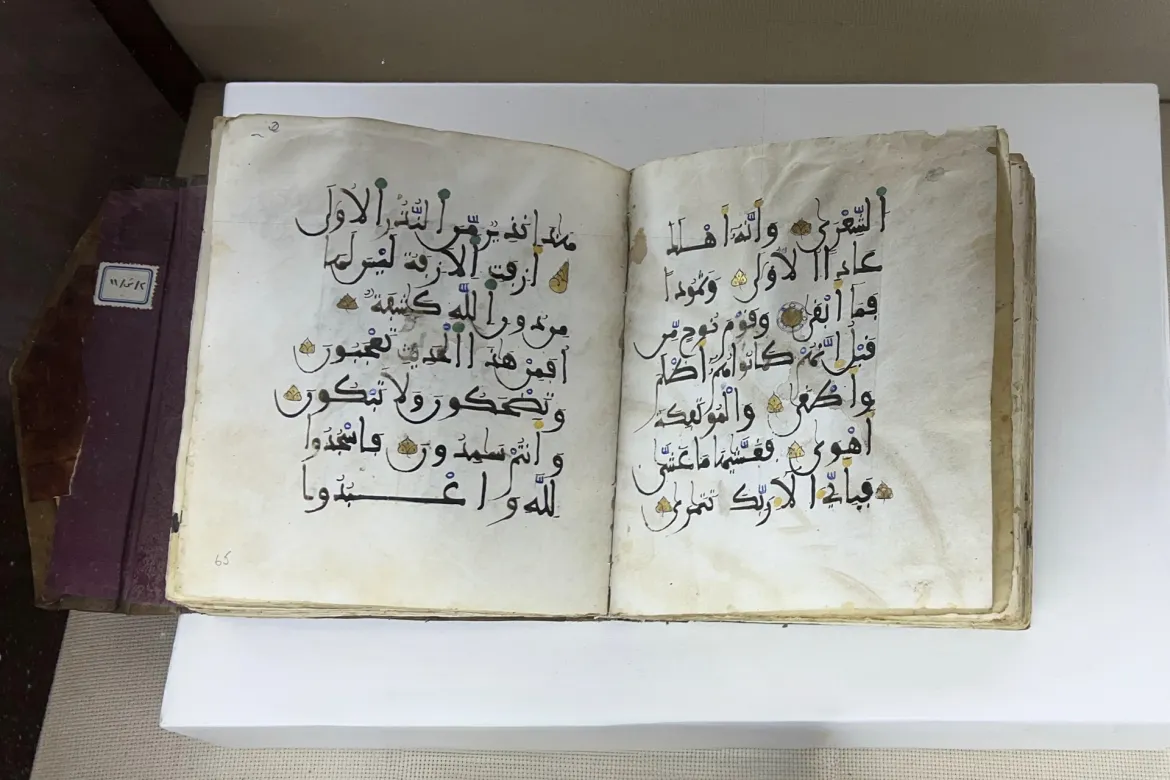 الشعرى وأنه أهلك
عادا الاولى وثمودا
فما أبقى وقوم نوح من
قبل إنهم كانوا هم أظلم
وأطغى والمؤتفكة
أهوى فغشيها ما غشى
فبأي الا ربك تتمرى
هذا نذير من النذر الاولى
أزفت الازفة ليس لها
من دون الله كشفة
أفمن هذا الحديث تعجبون
وتضحكون ولا تبكون
وأنتم سمدون فاسجدوا
لله واعبدوا
65